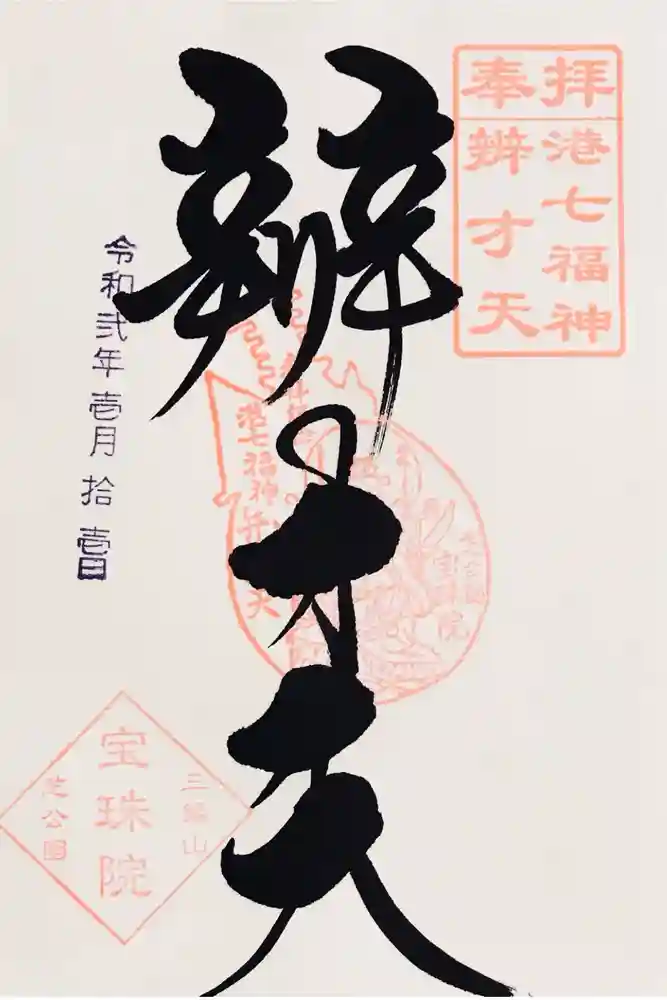 奉拝
港七福神
辨才天
辨才天
令和弐年壱月拾壱日
港七福神弁
天
宝珠院
三縁山
宝珠院
芝公園